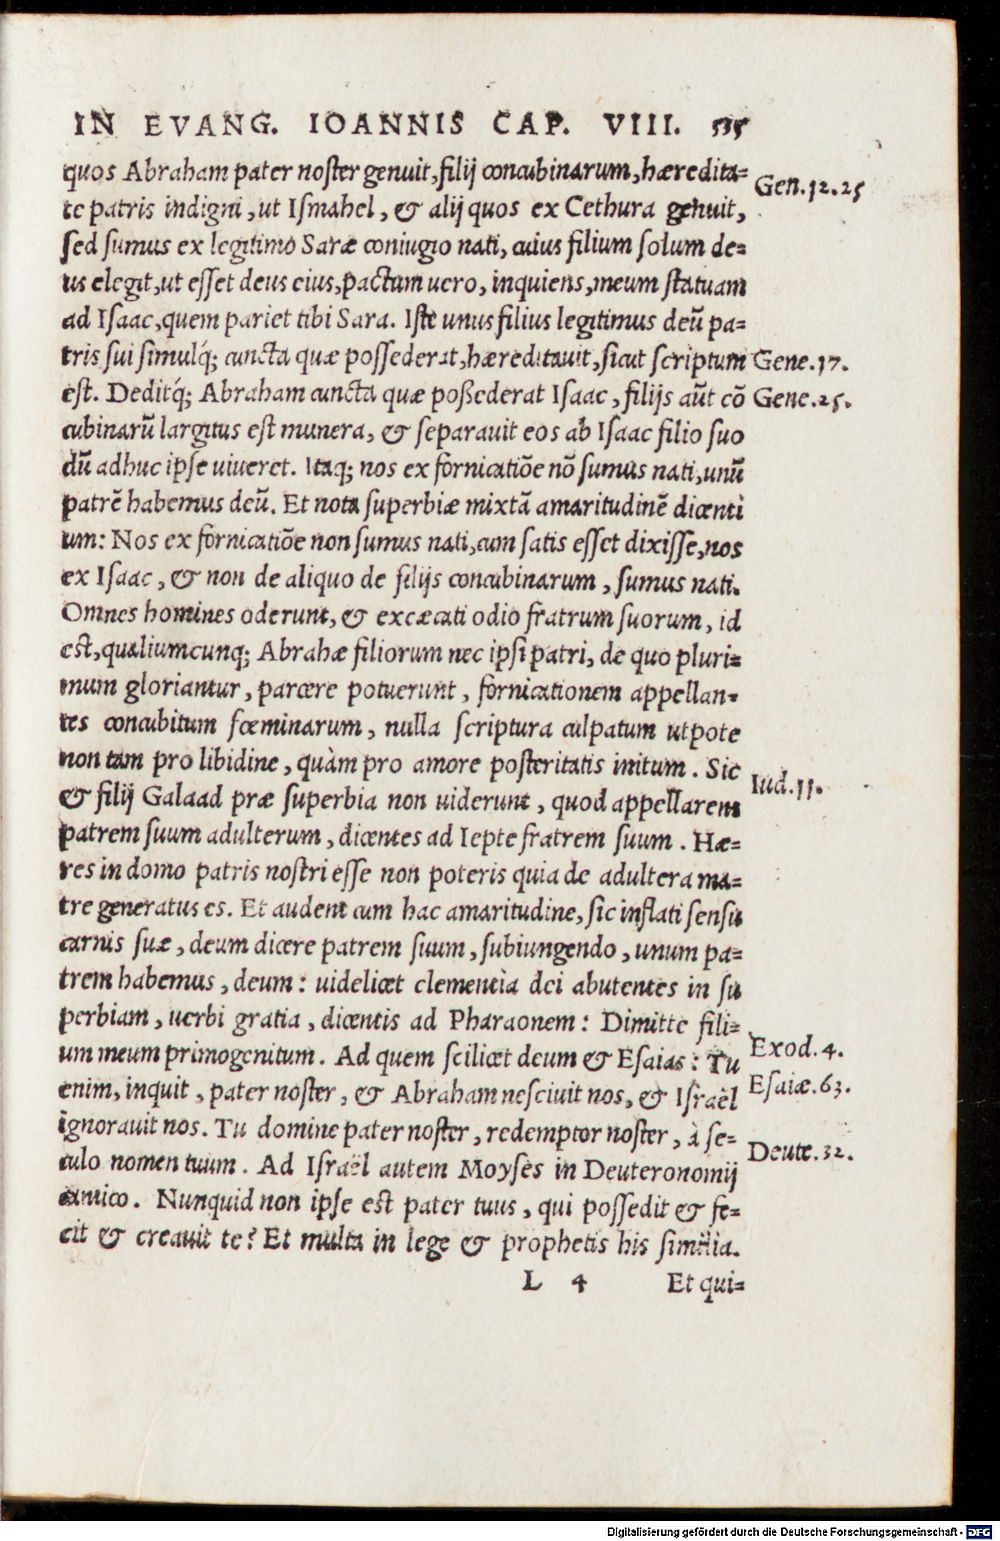 IN EVANG. IOANNIS CAP. VIII. 535
quos Abraham pater noſter genuit, filij concubinarum, hæredita=
te patris indigni, ut Iſmahel, & alij quos ex Cethura genuit,
Gen. 12. 25
ſed ſumus ex legitimo Saræ coniugio nati, cuius filium ſolum de=
us elegit, ut eſſet deus eius, pactum uero, inquiens, meum ſtatuam
ad Iſaac, quem pariet tibi Sara. Iſte unus filius legitimus deũ pa=
tris ſui ſimulq́; cuncta quæ poſſederat, hæreditauit, ſicut ſcriptum
Gene. 17.
est. Deditq́; Abraham cuncta quæ poßederat Iſaac, filijs aũt cõ
Gene. 25.
cubinarũ largitus eſt munera, & ſeparauit eos ab Iſaac filio ſuo
dũ adhuc ipſe uiueret. Itaq; nos ex fornicatiõe nõ ſumus nati, unũ
patrẽ habemus deũ. Et nota ſuperbiæ mixtã amaritudinẽ dicentì
um: Nos ex fornicatiõe non ſumus nati, cum ſatis eſſet dixiſſe, nos
ex Iſaac, & non de aliquo de filijs concubinarum, ſumus nati.
Omnes homines oderunt, & excæcati odio fratrum ſuorum, id
est, qualiumcunq; Abrahæ filiorum nec ipſi patri, de quo pluri=
mum gloriantur, parcere potuerunt, fornicationem appellan=
tes concubitum fœminarum, nulla ſcriptura culpatum utpote
non tam pro libidine, quàm pro amore poſteritatis initum. Sic
Iud. 11.
& filij Galaad præ ſuperbia non uiderunt, quod appellarent
patrem ſuum adulterum, dicentes ad Iepte fratrem ſuum. Hæ=
res in domo patris noſtri eſſe non poteris quia de adultera ma=
tre generatus es. Et audent cum hac amaritudine, ſic inflati ſenſu
carnis ſuæ, deum dicere patrem ſuum, ſubiungendo, unum pa=
trem habemus, deum: uidelicet clementìa dei abutentes in ſu
perbiam, uerbi gratia, dicentis ad Pharaonem: Dimitte fili=
um meum primogenitum. Ad quem ſcilicet deum & Eſaias: Tu
Exod. 4.
enim, inquit, pater noſter, & Abraham neſciuit nos, & Iſraël
Eſaiæ. 63.
ignorauit nos. Tu domine pater noſter, redemptor noſter, à ſe=
culo nomen tuum. Ad Iſraël autem Moyſès in Deuteronomij
Deute. 32.
cantico. Nunquid non ipſe est pater tuus, qui poſſedit & fe=
cit & creauit te? Et multa in lege & prophetis his ſimilia.
L 4 Et qui=
Digitalisierung gefördert durch die Deutsche Forschungsgemeinschaft - DFG